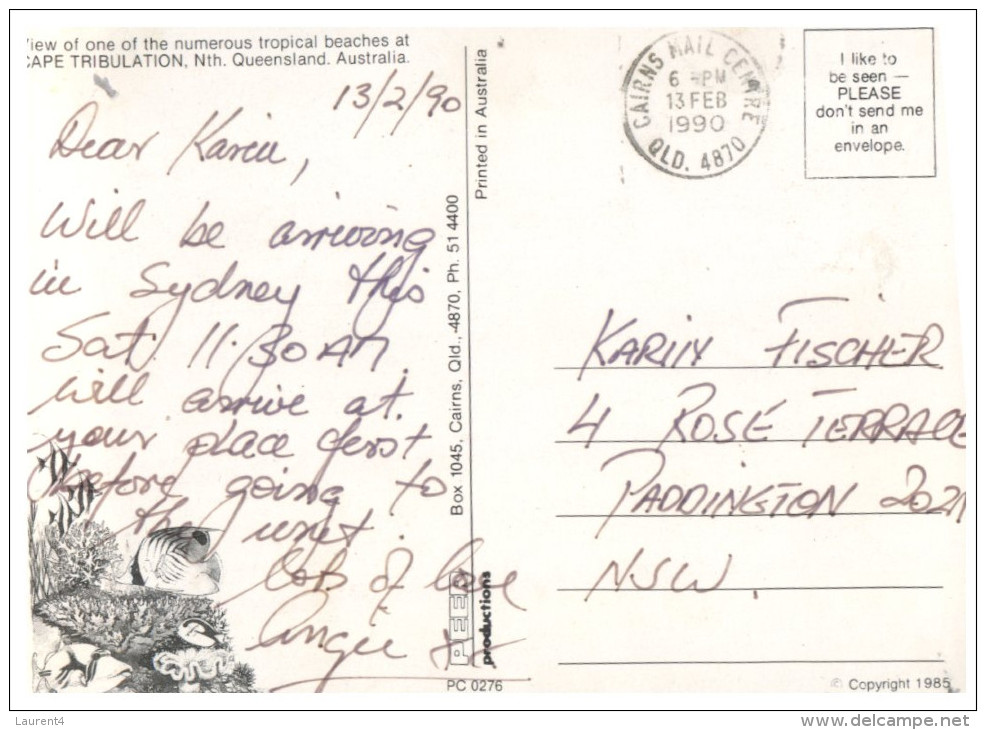 View of one of the numerous tropical beaches at
CAPE TRIBULATION, Nth. Queensland. Australia.
13/2/90
Dear Karin,
Will be arriving
in Sydney this
Sat. 11.30 AM
will arrive at.
your place first
before going to
the unit.
lots of love
Angie
Box 1045, Cairns, Qld., 4870, Ph. 51 4400
Printed in Australia
PEER
productions
PC 0276
CAIRNS MAIL CENTRE
6 -PM
13 FEB
1990
QLD. 4870
I like to
be seen —
PLEASE
don't send me
in an
envelope.
KARIN FISCHER
4 ROSE TERRACE
PADDINGTON 2021
NSW.
© Copyright 1985
Laurent4
www.delcampe.net